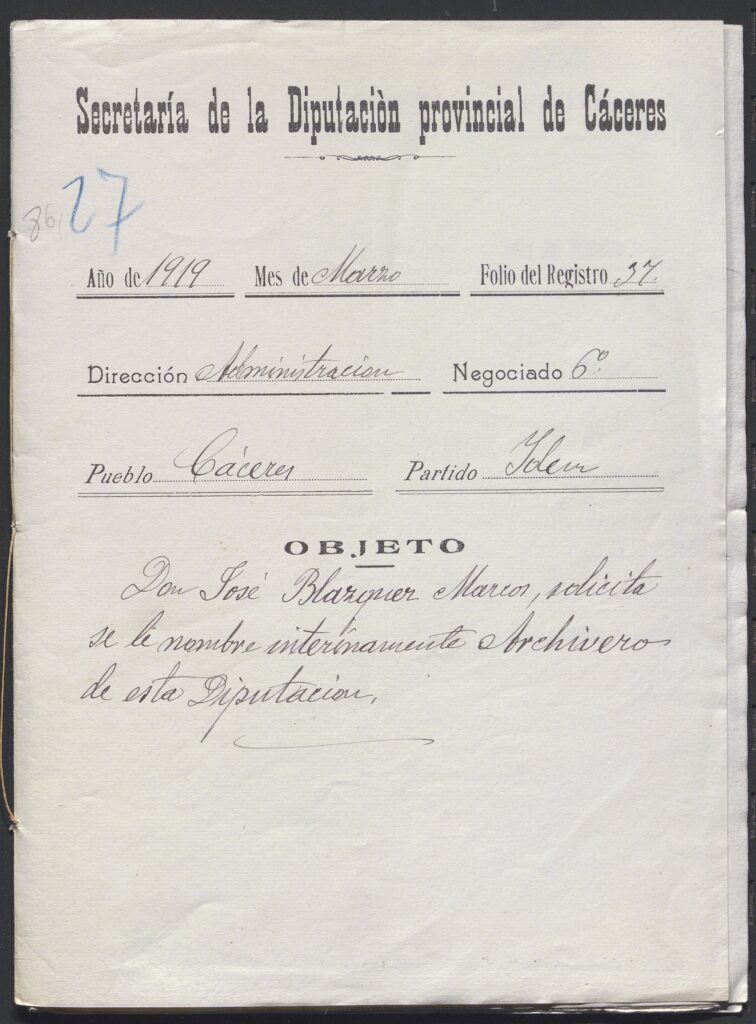 Secretaría de la Diputaciòn provincial de Cáceres
27
Año de 1919 Mes de Marzo Folio del Registro 37.
Dirección Administracion Negociado 6º
Pueblo Cáceres Partido Idem
OBJETO
Don José Blazquez Marcos, solicita
se le nombre interinamente Archivero
de esta Diputacion.